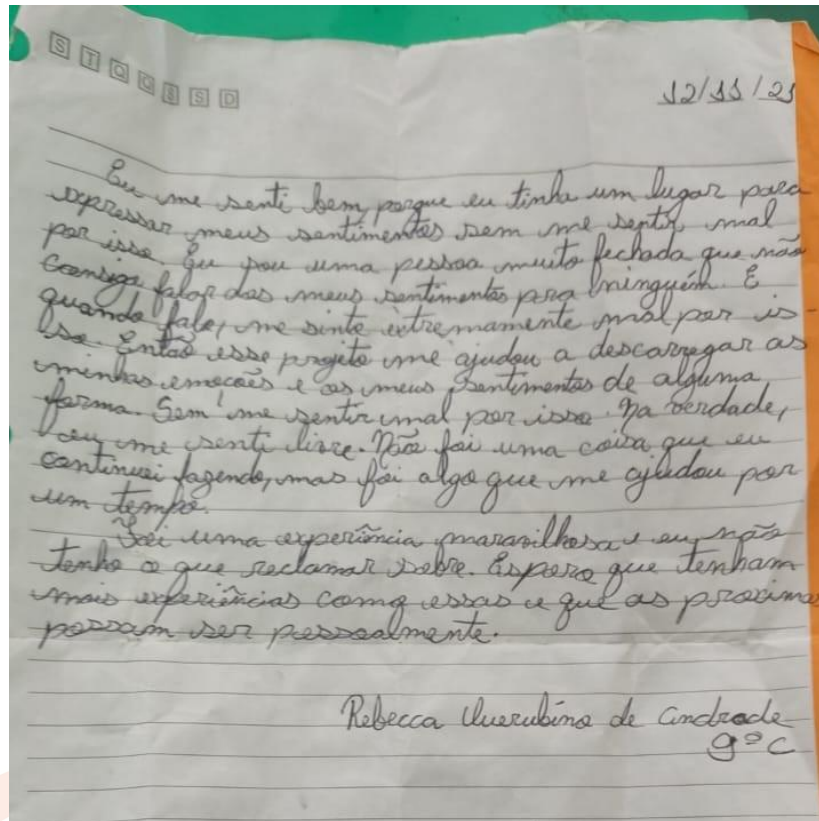 S T Q Q S S D
12/11/21
Eu me senti bem, porque eu tinha um lugar para
expressar meus sentimentos sem me sentir mal
por isso. Eu sou uma pessoa muito fechada que não
consigo falar dos meus sentimentos pra ninguém. E
quando falo, me sinto extremamente mal por is-
so. Então esse projeto me ajudou a descarregar as
minhas emoções e os meus sentimentos de alguma
forma. Sem me sentir mal por isso. Na verdade,
eu me senti livre. Não foi uma coisa que eu
continuei fazendo, mas foi algo que me ajudou por
um tempo.
Foi uma experiência maravilhosa e eu não
tenho o que reclamar sobre. Espero que tenham
mais experiências como essas e que as proximas
possam ser pessoalmente.
Rebecca de Andrade
9º C